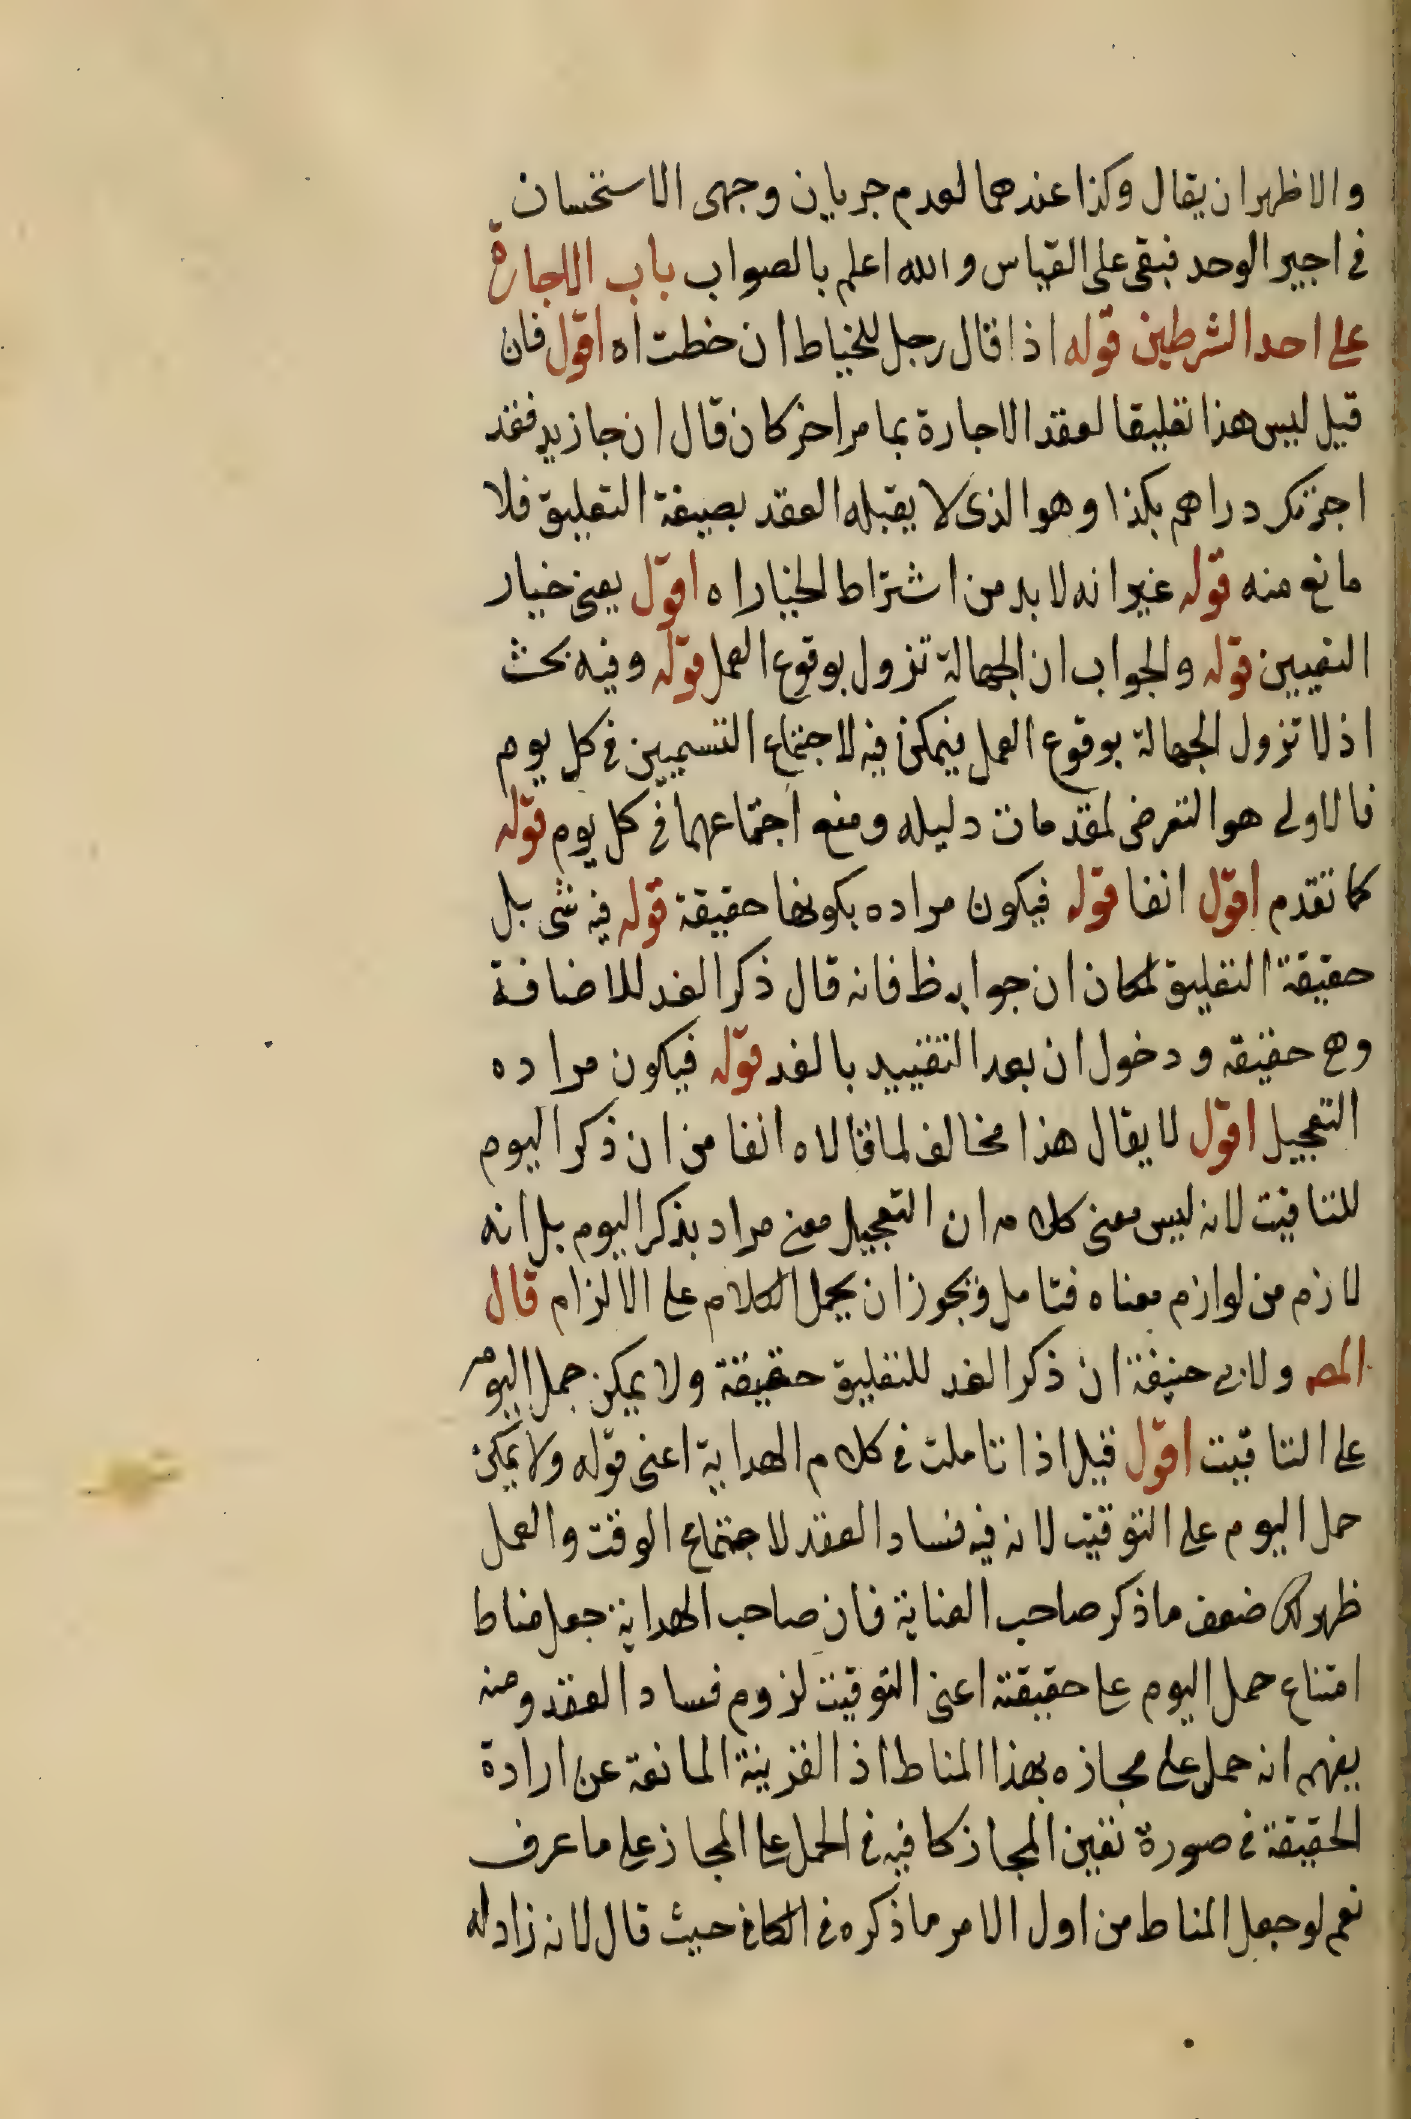 والاظهر ان يقال وكذا عندهما لعدم جريان وجهى الاستحسان
فى اجير الوحد فبقى على القياس والله اعلم بالصواب باب الاجارة
على احد الشرطين قوله اذا قال رجل للخياط ان خطت اه اقول فان
قيل ليس هذا تعليقا لعقد الاجارة بما مر اخر كان قال ان جا زيد فقد
اجرتك دراهم بكذا وهو الذى لا يقبله العقد بصيغة التعليق فلا
مانع منه قوله غير انه لا بد من اشتراط الخيار اه اقول يعنى خيار
التعيين قوله والجواب ان الجهالة تزول بوقوع العمل قوله وفيه بحث
اذ لا تزول الجهالة بوقوع العمل يتمكن فيه لاجتماع التسميين فى كل يوم
فالاولى هو التعرض لمقدمات دليله ومنع اجتماعهما فى كل يوم قوله
كما تقدم اقول انفا قوله فيكون مراده بكونها حقيقة قوله فيه شى بل
حقيقة التعليق لمكان ان جوابه ظ فانه قال ذكر الغد للاضافة
وهى حقيقة ودخول ان بعد التقييد بالغد قوله فيكون مراده
التعجيل اقول لا يقال هذا مخالف لما قالاه انفا من ان ذكر اليوم
للتاقيت لانه ليس معنى كلامه ان التعجيل معنى مراد بذكر اليوم بل انه
لازم من لوازم معناه فتامل ويجوز ان يحمل الكلام على الالزام قال
المص ولابى حنيفة ان ذكر الغد للتعليق حقيقة ولا يمكن حمل اليوم
على التاقيت اقول قيل اذا تاملت فى كلام الهداية اعنى قوله ولا يمكن
حمل اليوم على التوقيت لانه فيه فساد العقد لاجتماع الوقت والعمل
ظهر لك ضعف ما ذكر صاحب العناية فان صاحب الهداية جعل مناط
امتناع حمل اليوم على حقيقته اعنى التوقيت لزوم فساد العقد ومنه
يفهم انه حمل على مجازه بهذا المناط اذ القرينة المانعة عن ارادة
الحقيقة فى صورة تعين المجاز كافيه فى الحمل على المجاز على ما عرف
نعم لو جعل المناط من اول الامر ما ذكره فى الكافى حيث قال لانه زاد له